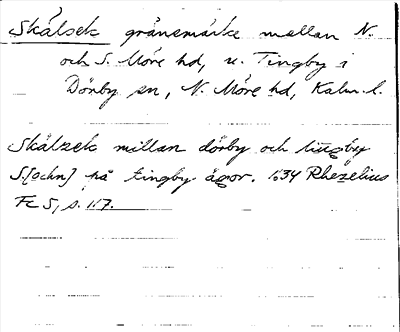 Skålsek gränsmärke mellan N.
och S. Möre hd, u. Tingby i
Dörby sn, N. Möre hd, Kalm. l.
Skålzek millan dörby och tingby
S.[ochn] på tingby ägor. 1634 Rhezelius
Fc 5, s. 117.